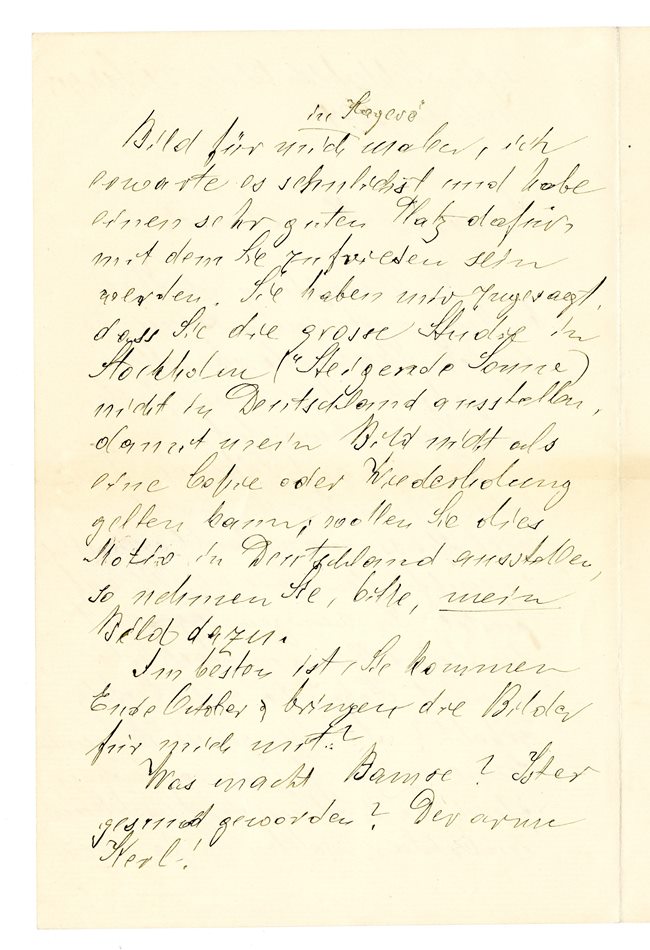 in Kragerö
Bild für mich malen, ich
erwarte es sehnlichst und habe
einen sehr guten Platz dafür,
mit dem Sie zufrieden sein
werden. Sie haben mir zugesagt,
dass Sie die grosse Studie in
Stockholm ("Steigende Sonne)
nicht in Deutschland ausstellen,
damit mein Bild nicht als
eine Copie oder Wiederholung
gelten kann; wollen Sie dies
Motiv in Deutschland ausstellen,
so nehmen Sie, bitte, mein
Bild dazu.
Am besten ist, Sie kommen
Ende October & bringen die Bilder
für mich mit.?
Was macht Bamse? Ist er
gesund geworden? Der arme
Kerl!